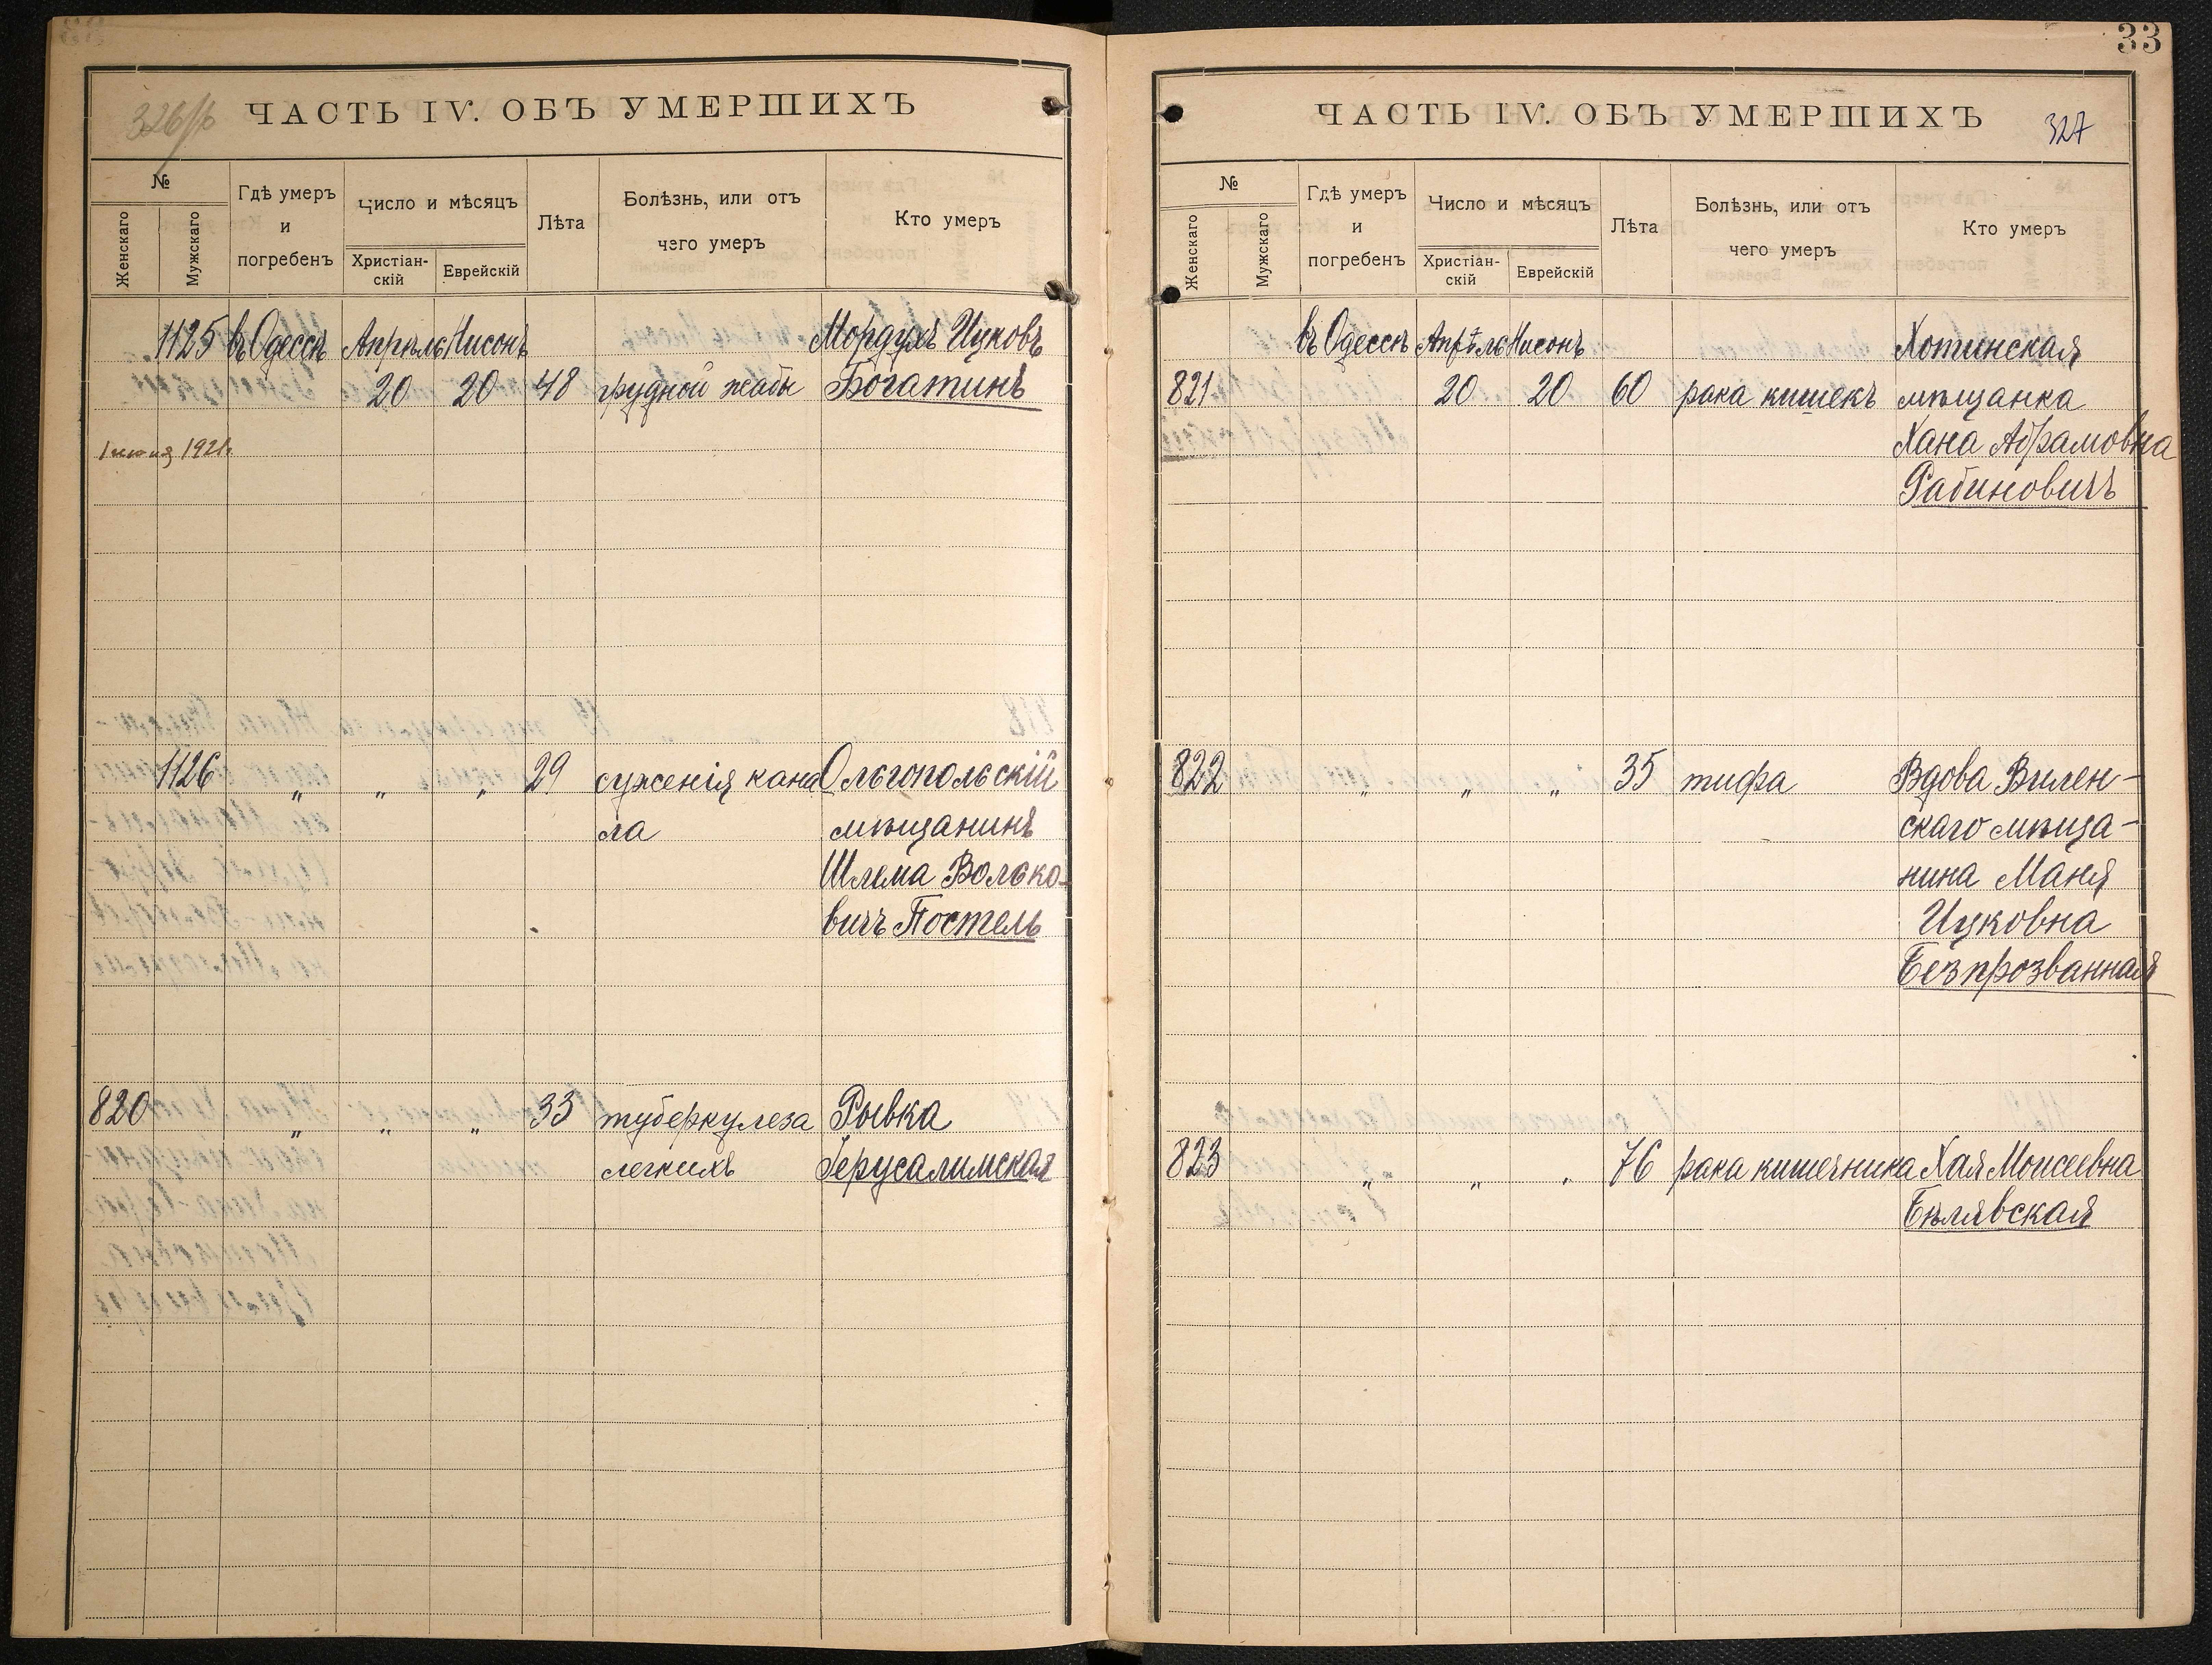 33
326/б
ЧАСТЬ IV. ОБЪ УМЕРШИХЪ
№
Женскаго
Мужскаго
Гдѣ умеръ
и
погребенъ
Число и мѣсяцъ
Христіан-
скій
Еврейскій
Лѣта
Болѣзнь, или отъ
чего умеръ
Кто умеръ
1125 въ Одессѣ Апрѣль Нисонъ Мордухъ Ицковъ
20 20 48 грудной жабы Богатинъ
1921.
1126 „ „ „ 29 суженія кана Ольгопольскій
ла мѣщанинъ
Шлема Волько-
вичъ Постель
820 „ „ „ 33 туберкулеза Рывка
легкихъ Іерусалимская
ЧАСТЬ IV. ОБЪ УМЕРШИХЪ
327
№
Женскаго
Мужскаго
Гдѣ умеръ
и
погребенъ
Число и мѣсяцъ
Христіан-
скій
Еврейскій
Лѣта
Болѣзнь, или отъ
чего умеръ
Кто умеръ
въ Одессѣ Апрѣль Нисонъ Хотинская
821 20 20 60 рака кишекъ мѣщанка
Хана Абрамовна
Рабиновичъ
822 „ „ „ 35 тифа Вдова Вилен-
скаго мѣща-
нина Маня
Ицковна
Безпрозванная
823 „ „ „ 76 рака кишечника Хая Моисеевна
Бѣлявская